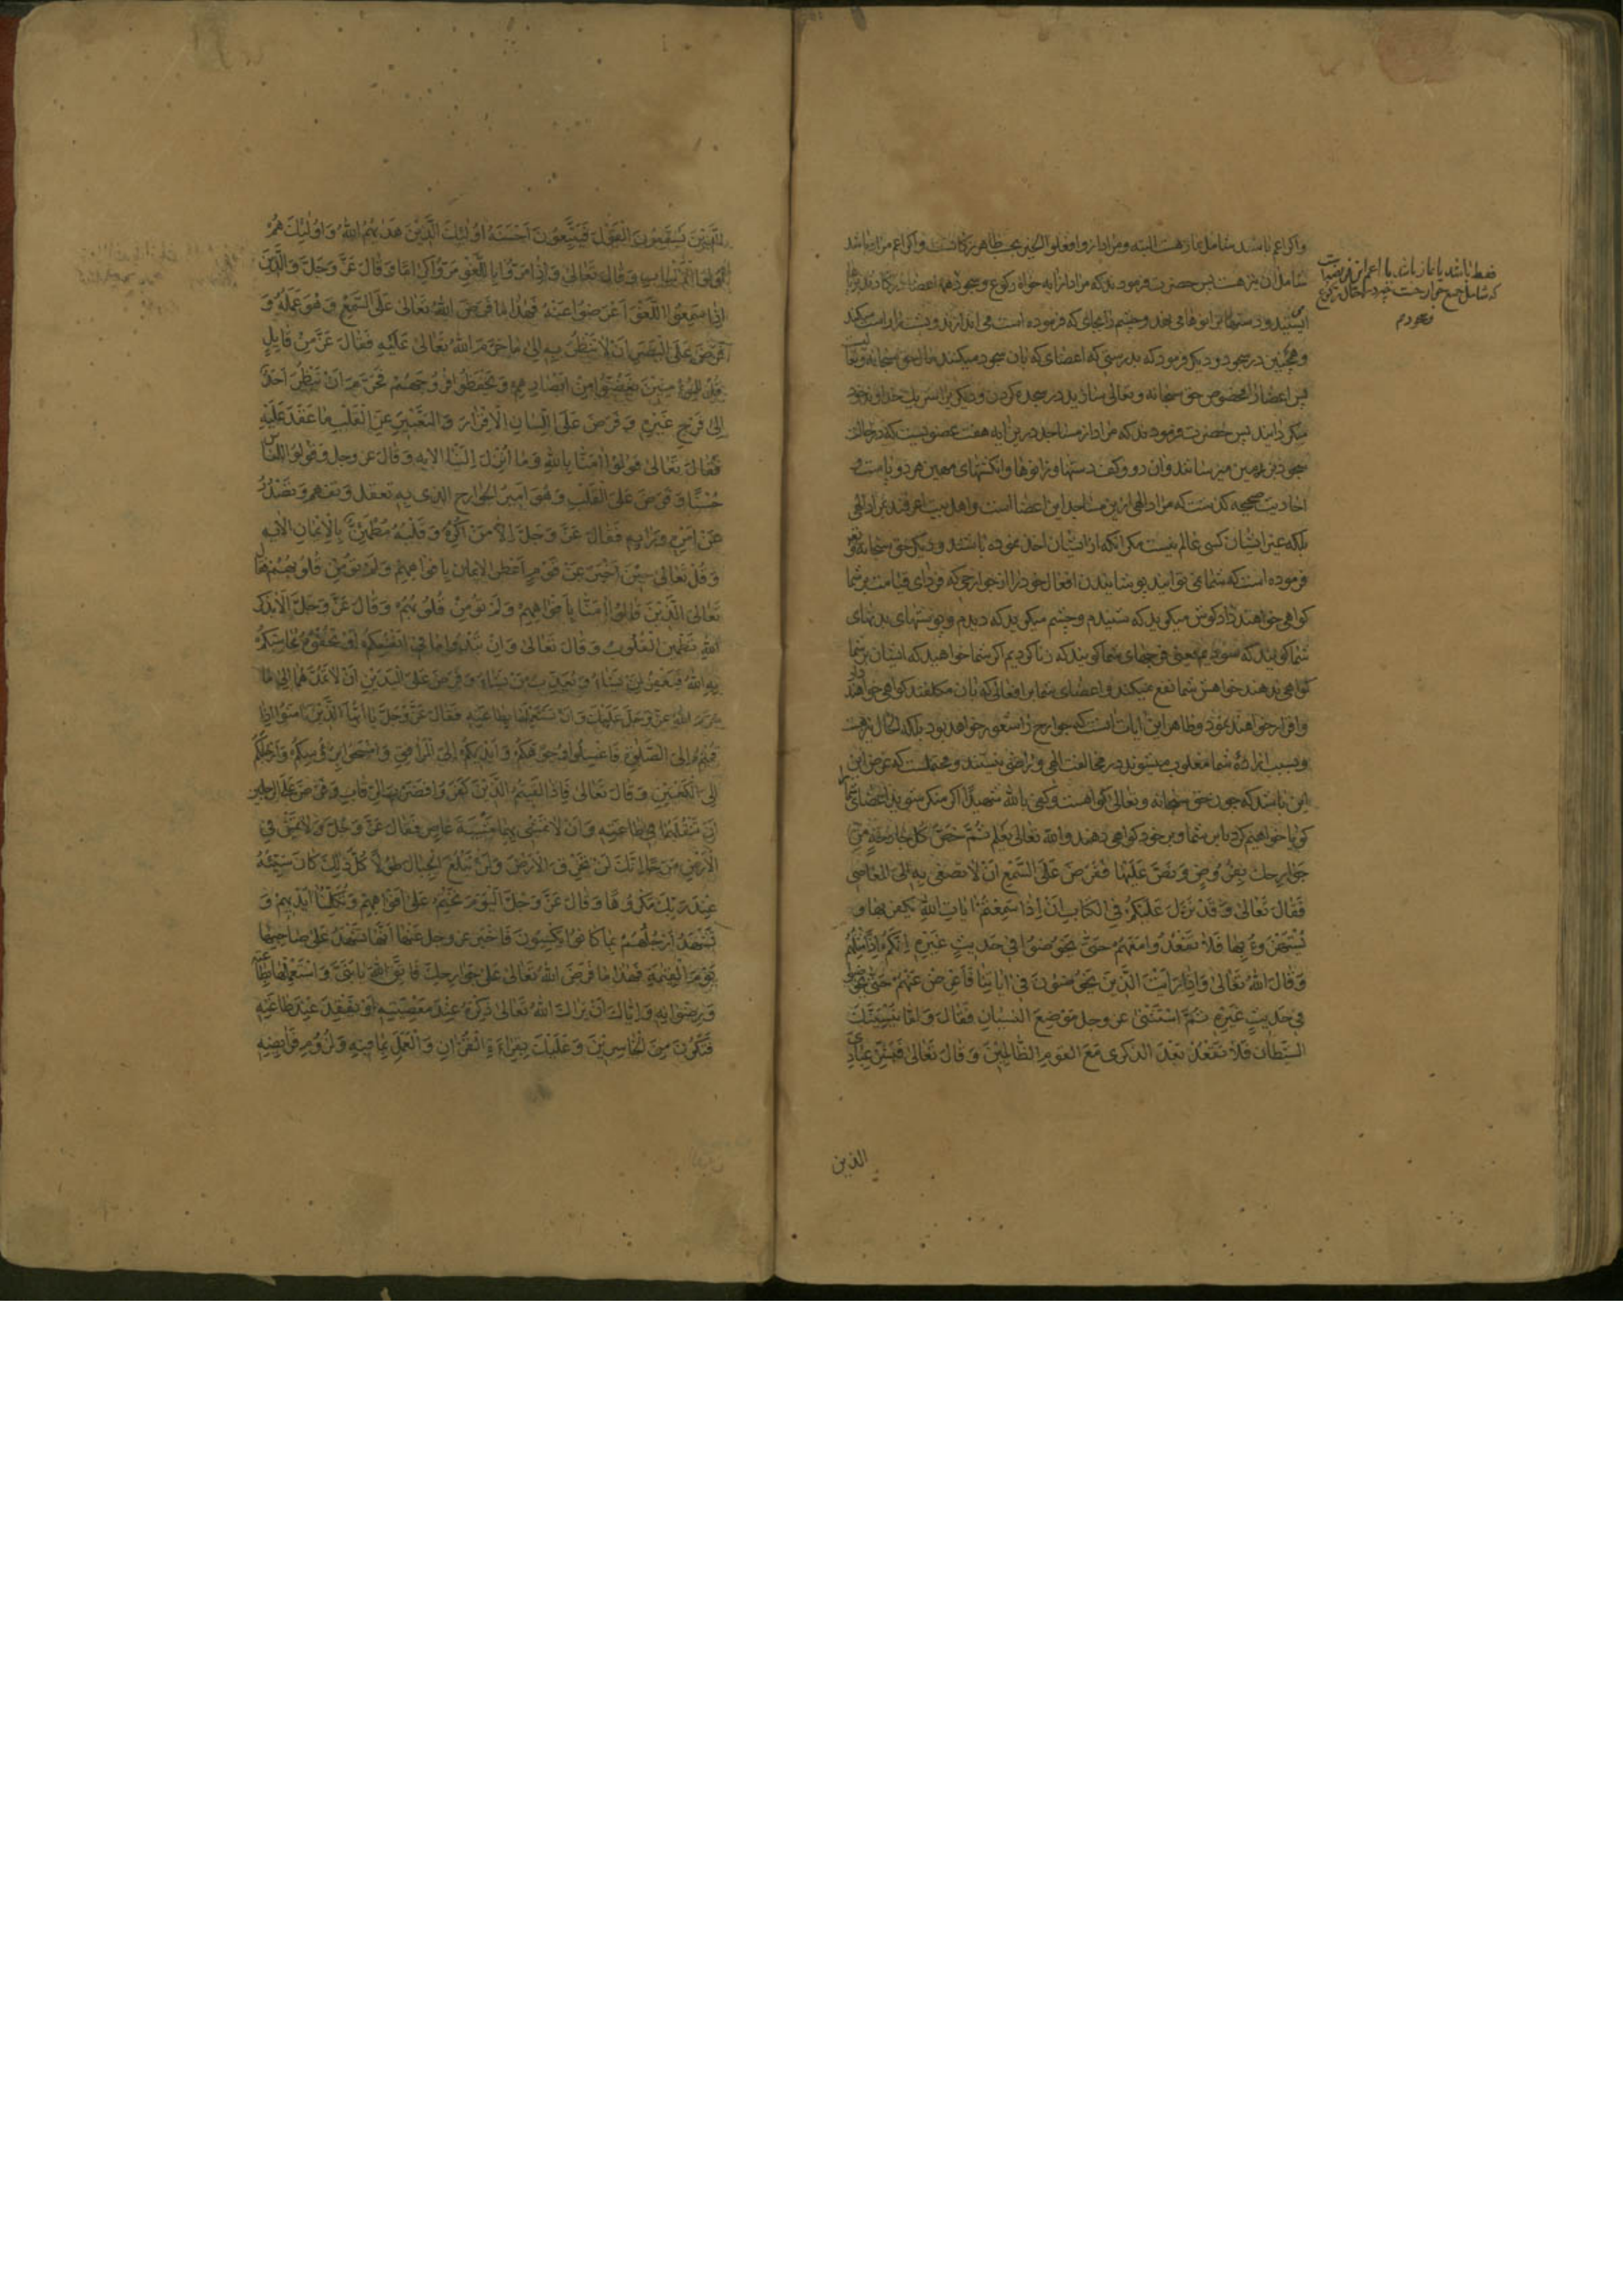 واکر اعم باشد شامل نماز هست البته و مراد از وافعلوا الخیر بحسب ظاهر زکاتست واکر اعم مراد باشد
شامل آن نیز هست پس حضرت فرمودند که مراد ازین آیه خواه رکوع و سجود همه اعضا
ایستند و دستها بر زانوها می نهند و چشم را بجای که فرموده است می اندازند و پشت را راست میکند
و همچنین در سجود و دیکر فرمود که بدرستی که اعضای که بآن سجود میکنند مال حق سبحانه وتعا
پس اعضا را مخصوص حق سبحانه و تعالی سازید در سجده کردن و دیکری را شریک خداوند خود
میکردانید پس حضرت فرمودند که مراد از مساجد درین آیه هفت عضو نیست که در حالت
سجود بر زمین میرسانند و آن دو کف دستها و زانوها و انکشتهای مهین هر دو پا ست و
احادیث صحیحه کذشت که مراد الهی ازین مساجد این اعضا است و اهل بیت اعرفند بمراد الهی
بلکه غیر ایشان کسی عالم نیست مکر آنکه از ایشان اخذ نموده باشند و دیکر حق سبحانه وتع
فرموده است که شما نمی توانید پوشانیدن افعال خود را از جوارحی که فردای قیامت بر شما
کواهی خواهند داد کوش میکوید که شنیدم و چشم میکوید که دیدم و پوستهای بدنهای
شما کویند که یعنی فرجهای شما کویند که زنا کردیم اکر شما خواهید که ایشان بر شما
کواهی ندهند خواهش شما نفع نمیکند و اعضای شما بر افعالی که بآن مکلفند کواهی خواهند داد
و اقرار خواهند نمود و ظاهر این آیات آنست که جوارح را شعور خواهد بود بلکه الحال نیز هست
و بسبب اراده شما مغلوب میشوند در مخالفت الهی و راضی نیستند و محتملست که غرض ازین
این باشد که چون حق سبحانه و تعالی کواهست وکفی بالله شهیدا اکر منکر شوید اعضای شما را
کویا خواهیم کرد تا بر شما و بر خود کواهی دهند والله تعالی یعلم ثُمَّ خَصَّ كُلَّ جَارِحَةٍ مِنْ
جَوَارِحِكَ بِفَرْضٍ وَنَصَّ عَلَيْهَا فَفَرَضَ عَلَى السَّمْعِ اَنْ لاَ تصغى بِهِ اِلَى الْمَعَاصِي
فَقَالَ تَعَالى وَقَدْ نَزَّلَ عَلَيْكُمْ فِي الْكِتَابِ اَنْ اِذَا سَمِعْتُمْ ايَاتِ اللهِ يُكْفَرُ بِهَا وَ
يُسْتَهْزَءُ بِهَا فَلاَ تَقْعُدُوا مَعَهُمْ حَتّى يَخُوضُوا فِي حَدِيثٍ غَيْرِهِ اِنَّكُمْ اِذًا مِثْلُهُمْ
وَقَالَ اللهُ تَعَالى وَاِذَا رَاَيْتَ الَّذِينَ يَخُوضُونَ فِي ايَاتِنَا فَاَعْرِضْ عَنْهُمْ حَتّى يَخُوضُوا
فِي حَدِيثٍ غَيْرِهِ ثُمَّ اسْتَثْنى عز وجل مَوْضِعَ النِّسْيَانِ فَقَالَ وَاِمَّا يُنْسِيَنَّكَ
الشَّيْطَانُ فَلاَ تَقْعُدْ بَعْدَ الذِّكْرى مَعَ الْقَوْمِ الظَّالِمِينَ وَقَالَ تَعَالى فَبَشِّرْ عِبَادِي
الذین
فقط باشد یا با زیاده یا اعم ازین
که شامل جمیع جوارح
الَّذِينَ يَسْتَمِعُونَ الْقَوْلَ فَيَتَّبِعُونَ اَحْسَنَهُ اُولئِكَ الَّذِينَ هَدَيهُمُ اللهُ وَاُولئِكَ هُمْ
اُولُوا الْاَلْبَابِ وَقَالَ تَعَالى وَاِذَا مَرُّوا بِاللَّغْوِ مَرُّوا كِرَامًا وَقَالَ عَزَّ وَجَلَّ وَالَّذِينَ
اِذَا سَمِعُوا اللَّغْوَ اَعْرَضُوا عَنْهُ فَهذَا مَا فَرَضَ اللهُ تَعَالى عَلَى السَّمْعِ وَهُوَ عَمَلُهُ وَ
فَرَضَ عَلَى الْبَصَرِ اَنْ لاَ يَنْظُرَ بِهِ اِلى مَا حَرَّمَ اللهُ تَعَالى عَلَيْهِ فَقَالَ عَزَّ مِنْ قَايِلٍ
قُلْ لِلْمُؤْمِنِينَ يَغُضُّوا مِنْ اَبْصَارِهِمْ وَيَحْفَظُوا فُرُوجَهُمْ فَحَرَّمَ اَنْ يَنْظُرَ اَحَدٌ
اِلى فَرْجِ غَيْرِهِ وَفَرَضَ عَلَى اللِّسَانِ الْاِقْرَارَ وَالتَّعْبِيرَ عَنِ الْقَلْبِ مَا عَقَدَ عَلَيْهِ
فَقَالَ تَعَالى قُولُوا امَنَّا بِاللهِ وَمَا اُنْزِلَ اِلَيْنَا الايه وَقَالَ عز وجل وَقُولُوا لِلنَّاسِ
حُسْنًا وَفَرَضَ عَلَى الْقَلْبِ وَهُوَ اَمِيرُ الْجَوَارِحِ الذى بِهِ تعقل وَتفهم وَتَصْدُرُ
عَنْ اَمْرِهِ وَرَاْيِهِ فَقَالَ عَزَّ وَجَلَّ اِلاَّ مَنْ اُكْرِهَ وَقَلْبُهُ مُطْمَئِنٌّ بِالْاِيمَانِ الايه
وَقَالَ تَعَالى حِينَ اَخْبَرَ عَنْ قَوْمٍ اُعْطُوا الْاِيمَانَ بِاَفْوَاهِهِمْ وَلَمْ تُؤْمِنْ قُلُوبُهُمْ فَقَالَ
تَعَالى الَّذِينَ قَالُوا امَنَّا بِاَفْوَاهِهِمْ وَلَمْ تُؤْمِنْ قُلُوبُهُمْ وَقَالَ عَزَّ وَجَلَّ اَلاَ بِذِكْرِ
اللهِ تَطْمَئِنُّ الْقُلُوبُ وَقَالَ تَعَالى وَاِنْ تُبْدُوا مَا فِي اَنْفُسِكُمْ اَوْ تُخْفُوهُ يُحَاسِبْكُمْ
بِهِ اللهُ فَيَغْفِرُ لِمَنْ يَشَاءُ وَيُعَذِّبُ مَنْ يَشَاءُ وَفَرَضَ عَلَى الْيَدَيْنِ اَنْ لاَ تَمُدَّهُمَا اِلى مَا
حَرَّمَ اللهُ عَزَّ وَجَلَّ عَلَيْكَ وَاَنْ تَسْتَعْمِلَهُمَا بِطَاعَتِهِ فَقَالَ عَزَّ وَجَلَّ يَا اَيُّهَا الَّذِينَ امَنُوا اِذَا
قُمْتُمْ اِلَى الصَّلوةِ فَاغْسِلُوا وُجُوهَكُمْ وَاَيْدِيَكُمْ اِلَى الْمَرَافِقِ وَامْسَحُوا بِرُؤُسِكُمْ وَاَرْجُلَكُمْ
اِلَى الْكَعْبَيْنِ وَقَالَ تَعَالى فَاِذَا لَقِيتُمُ الَّذِينَ كَفَرُوا فَضَرْبَ الرِّقَابِ وَفَرَضَ عَلَى الرِّجْلَيْنِ
اَنْ تَنْقُلَهُمَا فِي طَاعَتِهِ وَاَنْ لاَ تَمْشِيَ بِهِمَا مِشْيَةَ عَاصٍ فَقَالَ عَزَّ وَجَلَّ وَلاَ تَمْشِ فِي
الْاَرْضِ مَرَحًا اِنَّكَ لَنْ تَخْرِقَ الْاَرْضَ وَلَنْ تَبْلُغَ الْجِبَالَ طُولاً كُلُّ ذلِكَ كَانَ سَيِّئُهُ
عِنْدَ رَبِّكَ مَكْرُوهًا وَقَالَ عَزَّ وَجَلَّ اَلْيَوْمَ نَخْتِمُ عَلى اَفْوَاهِهِمْ وَتُكَلِّمُنَا اَيْدِيهِمْ وَ
تَشْهَدُ اَرْجُلُهُمْ بِمَا كَانُوا يَكْسِبُونَ فَاَخْبَرَ عز وجل عَنْهَا اَنَّهَا تَشْهَدُ عَلى صَاحِبِهَا
يَوْمَ الْقِيمَةِ فَهذَا مَا فَرَضَ اللهُ تَعَالى عَلى جَوَارِحِكَ فَاتَّقِ اللهَ يَا بُنَيَّ وَاسْتَعْمِلْهَا بِطَاعَتِهِ
وَرِضْوَانِهِ وَاِيَّاكَ اَنْ يَرَاكَ اللهُ تَعَالى ذِكْرُهُ عِنْدَ مَعْصِيَتِهِ اَوْ يَفْقِدَكَ عِنْدَ طَاعَتِهِ
فَتَكُونَ مِنَ الْخَاسِرِينَ وَعَلَيْكَ بِقِرَاءَةِ الْقُرْانِ وَالْعَمَلِ بِمَا فِيهِ وَلُزُومِ فَرَايِضِهِ